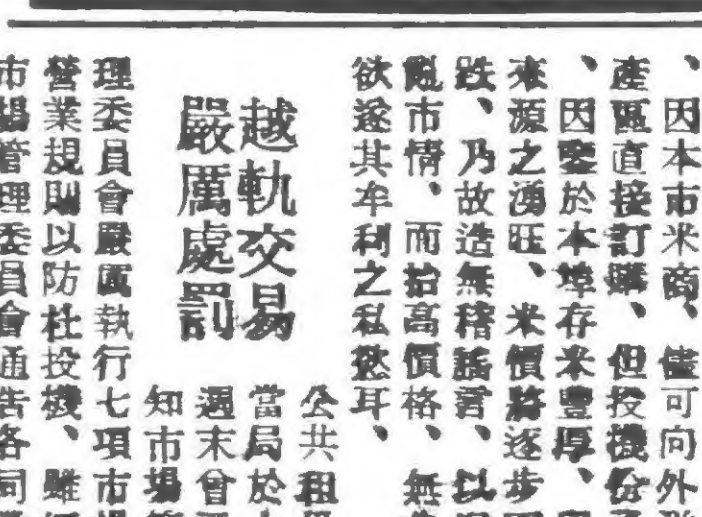 、因本市米商、儘可向外
產區直接訂購、但投機份
、因鑒於本埠存米豐厚、
來源之湧旺、米價將逐步
跌、乃故造無稽謠言、以
亂市情、而抬高價格、無
欲遂其牟利之私慾耳、
越軌交易
嚴厲處罰
公共租
當局於
週末會
知市場
理委員會嚴厲執行七項市
營業規則以防杜投機、雖
市場管理委員會通告各同